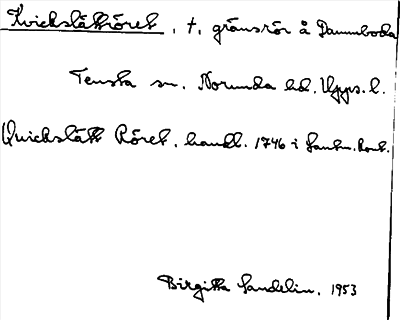 Kvickslättröret, †, gränsrör å Dammboda
Tensta sn. Norunda hd. Upps. l.
Quickslätt Röret, handl. 1746 i Lantm. kont.
Birgitta Sandelin, 1953